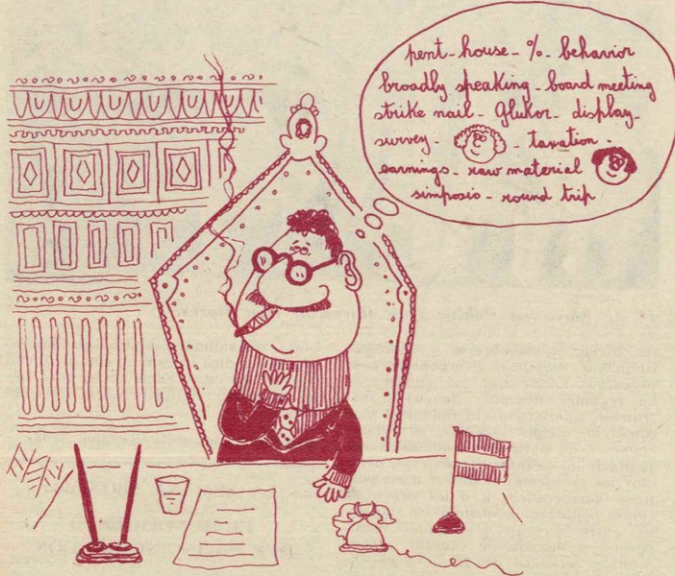 pent-house - % - behavior
broadly speaking - board meeting
strike nail - Glukor - display -
survey - - taxation -
earnings - raw material
simposio - round trip